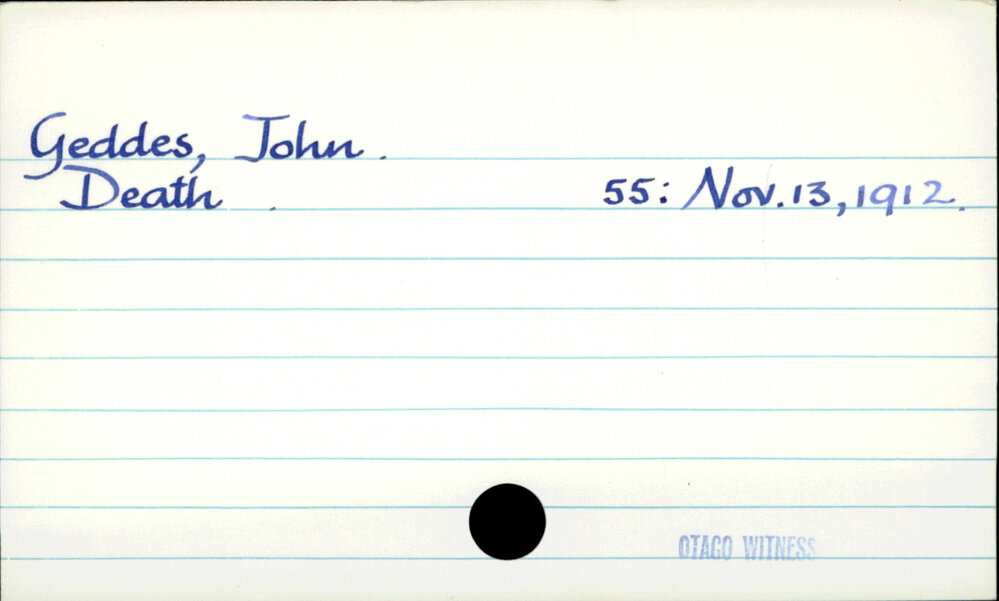 Geddes, John.
Death . 55: Nov. 13, 1912.
OTAGO WITNESS